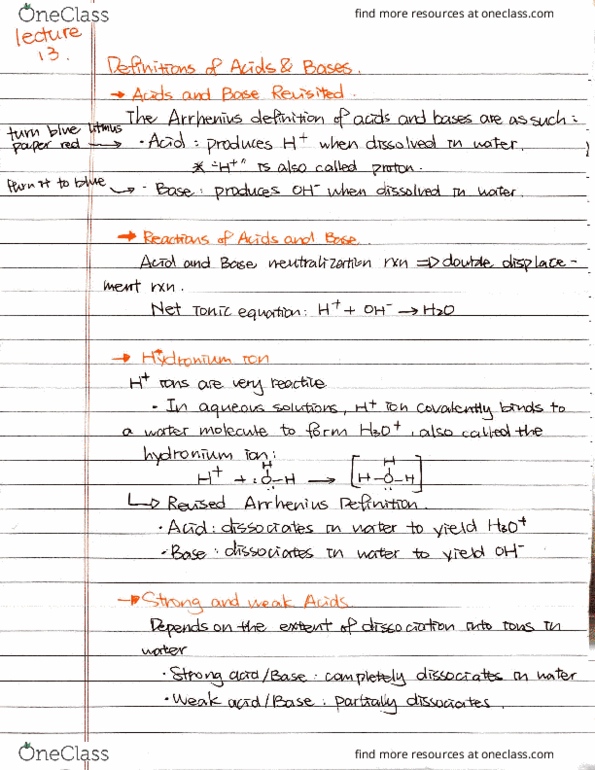 OneClass
find more resources at oneclass.com
lecture
13.
Definitions of Acids & Bases.
→ Acids and Base Revisited.
The Arrhenius definition of acids and bases are as such:
turn blue litmus
paper red → · Acid : produces H⁺ when dissolved in water.
* "H⁺" is also called proton.
turn it to blue → · Base : produces OH⁻ when dissolved in water.
→ Reactions of Acids and Base
Acid and Base neutralization rxn ⇒ double displace-
ment rxn.
Net Ionic equation : H⁺ + OH⁻ → H₂O
→ Hydronium ion
H⁺ ions are very reactive
· In aqueous solutions, H⁺ ion covalently binds to
a water molecule to form H₃O⁺, also called the
hydronium ion:
H H
H⁺ + :O-H → [H-O-H]
↳ Revised Arrhenius Definition.
· Acid : dissociates in water to yield H₃O⁺
· Base : dissociates in water to yield OH⁻
→ Strong and weak Acids
Depends on the extent of dissociation into ions in
water
· Strong acid/Base : completely dissociates in water
· Weak acid/Base : partially dissociates.
OneClass
find more resources at oneclass.com